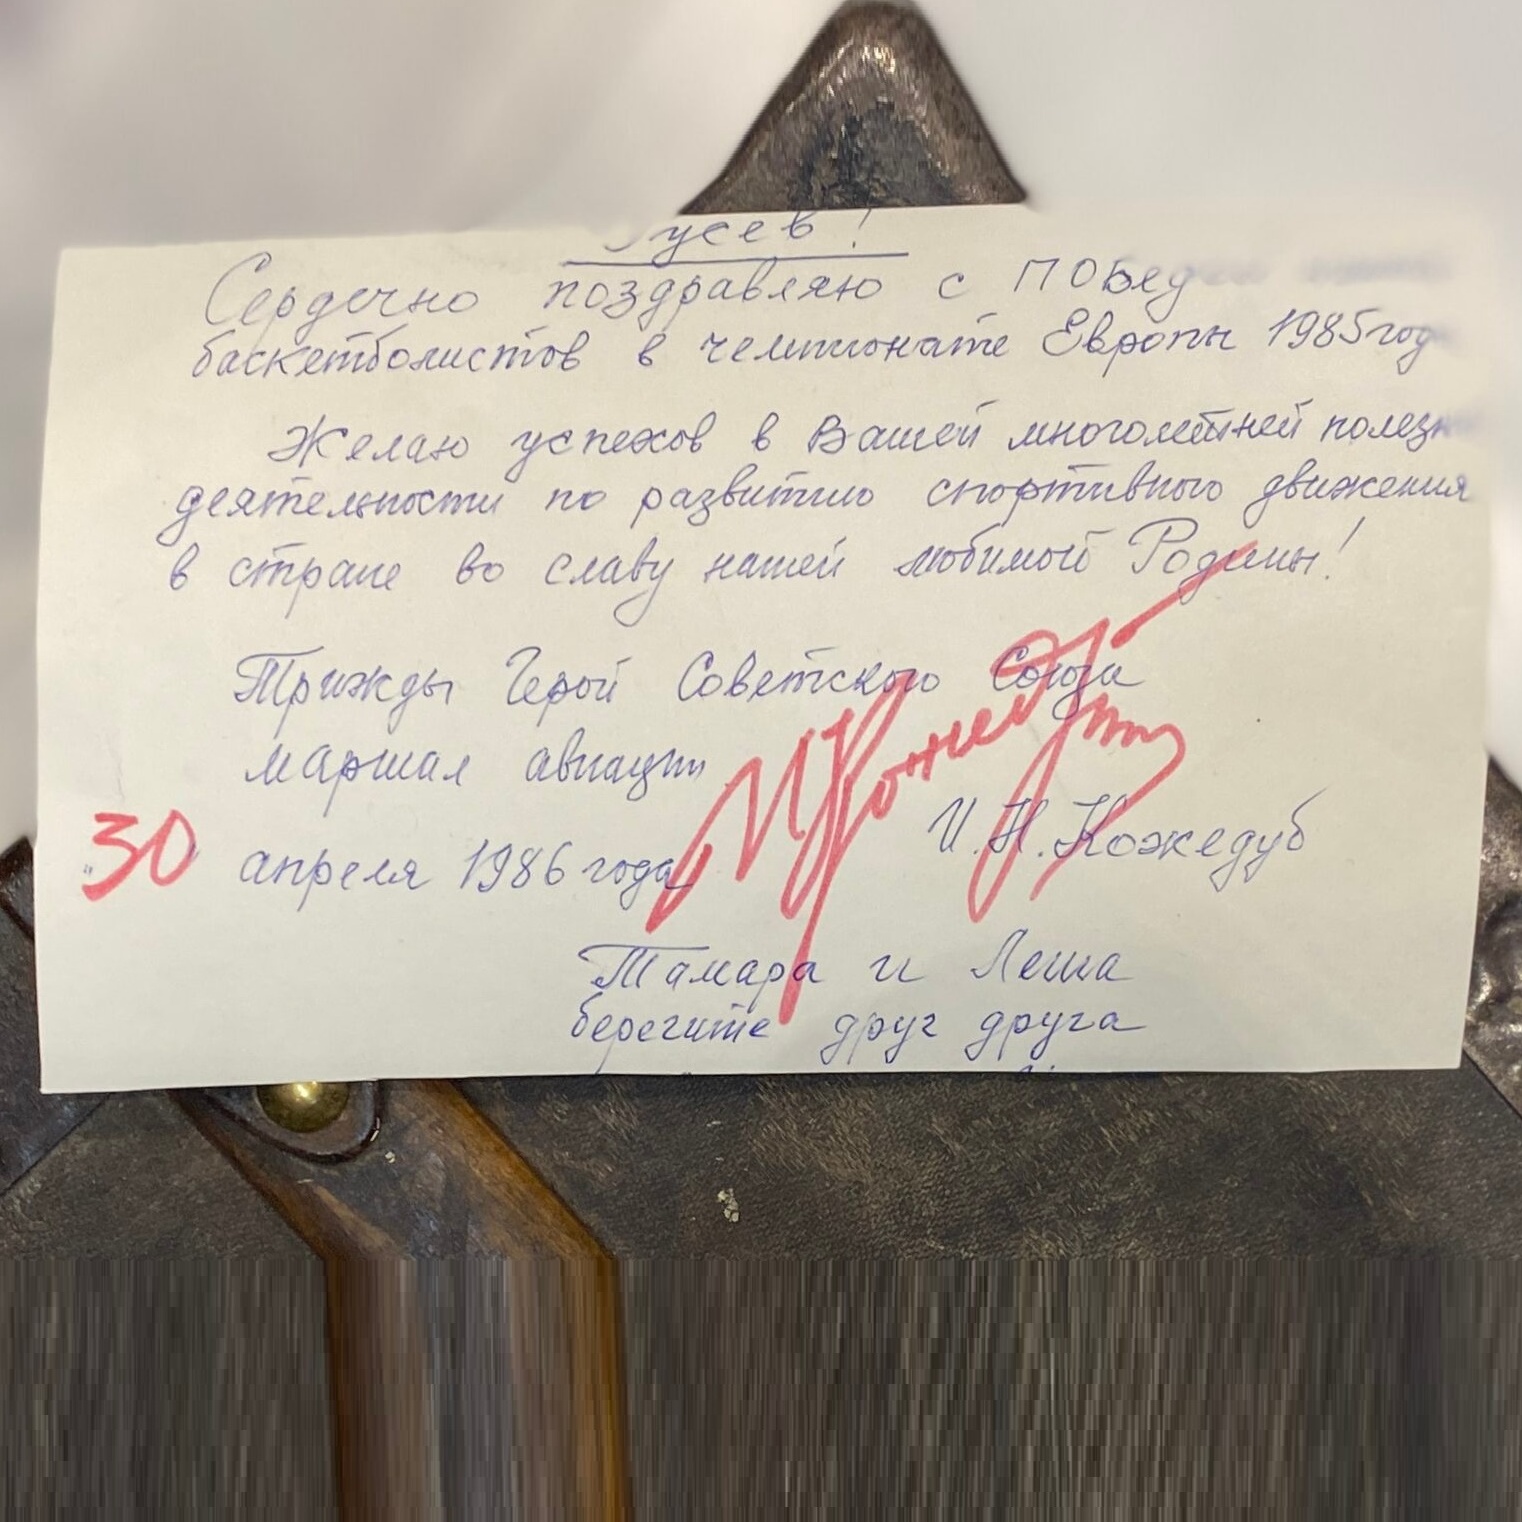 Гусев!
Сердечно поздравляю с Победой
баскетболистов в чемпионате Европы 1985 года
Желаю успехов в Вашей многолетней полезн
деятельности по развитию спортивного движения
в стране во славу нашей любимой Родины!
Трижды Герой Советского Союза
маршал авиации
И Кожедуб
И. Н. Кожедуб
"30 апреля 1986 года
Тамара и Леша
берегите друг друга